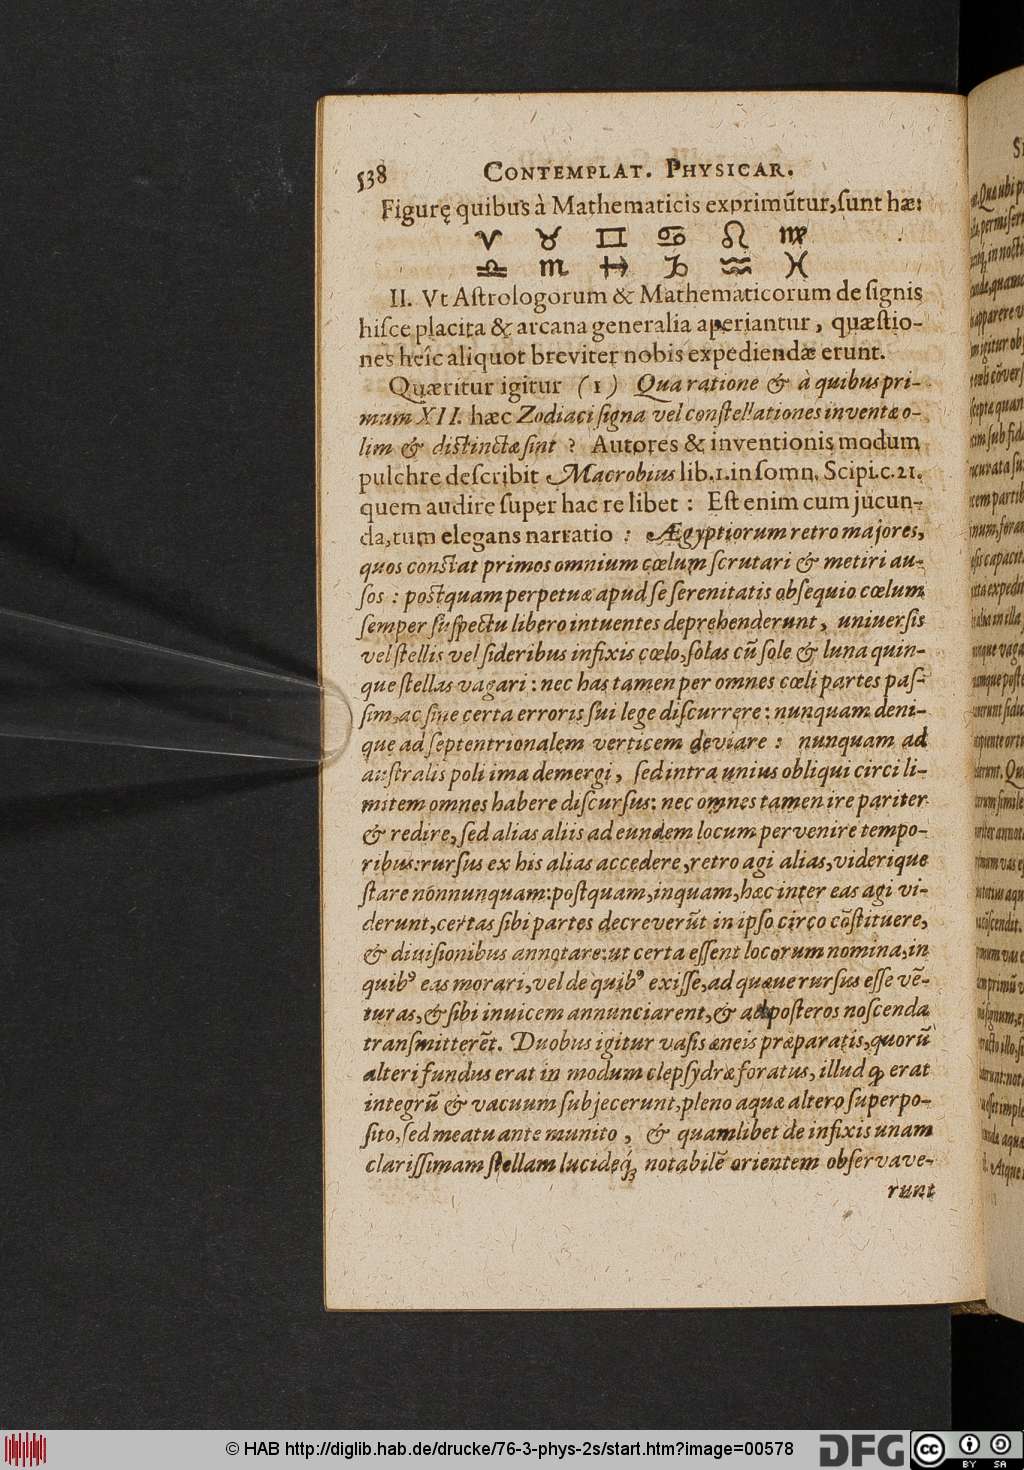 538 CONTEMPLAT. PHYSICAR.
Figurę quibus à Mathematicis exprimũtur, ſunt hæ:
♈ ♉ ♊ ♋ ♌ ♍
♎ ♏ ♐ ♑ ♒ ♓
II. Vt Aſtrologorum & Mathematicorum de ſignis
hiſce placita & arcana generalia aperiantur, quæſtio-
nes heîc aliquot breviter nobis expediendæ erunt.
Quæritur igitur (1) Qua ratione & à quibus pri-
mum XII. hæc Zodiaci ſigna vel conſtellationes inventæ o-
lim & diſtinctæ ſint? Autores & inventionis modum
pulchre deſcribit Macrobius lib.1.in ſomn. Scipi.c.21.
quem audire ſuper hac re libet: Eſt enim cum jucun-
da, tum elegans narratio: Ægyptiorum retro majores,
quos conſtat primos omnium cœlum ſcrutari & metiri au-
ſos: poſtquam perpetuæ apud ſe ſerenitatis obſequio cœlum
ſemper ſuſpectu libero intuentes deprehenderunt, uniuerſis
vel ſtellis vel ſideribus infixis cœlo, ſolas cũ ſole & luna quin-
que ſtellas vagari: nec has tamen per omnes cœli partes paſ-
ſim, ac ſine certa erroris ſui lege diſcurrere: nunquam deni-
que ad ſeptentrionalem verticem deviare: nunquam ad
auſtralis poli ima demergi, ſed intra unius obliqui circi li-
mitem omnes habere diſcurſus: nec omnes tamen ire pariter
& redire, ſed alias aliis ad eundem locum pervenire tempo-
ribus: rurſus ex his alias accedere, retro agi alias, viderique
ſtare nonnunquam: poſtquam, inquam, hæc inter eas agi vi-
derunt, certas ſibi partes decreverũt in ipſo circo cõſtituere,
& diuiſionibus annotare: ut certa eſſent locorum nomina, in
quibꝰ eas morari, vel de quibꝰ exiſſe, ad quæue rurſus eſſe vẽ-
turas, & ſibi inuicem annunciarent, & ad poſteros noſcenda
tranſmitterẽt. Duobus igitur vaſis æneis præparatis, quorũ
alteri fundus erat in modum clepſydræ foratus, illud ꝙ erat
integrũ & vacuum ſubjecerunt, pleno aquæ altero ſuperpo-
ſito, ſed meatu ante munito, & quamlibet de infixis unam
clariſſimam ſtellam lucideq́ꝫ notabilẽ orientem obſervave-
runt
© HAB http://diglib.hab.de/drucke/76-3-phys-2s/start.htm?image=00578
DFG
cc BY SA